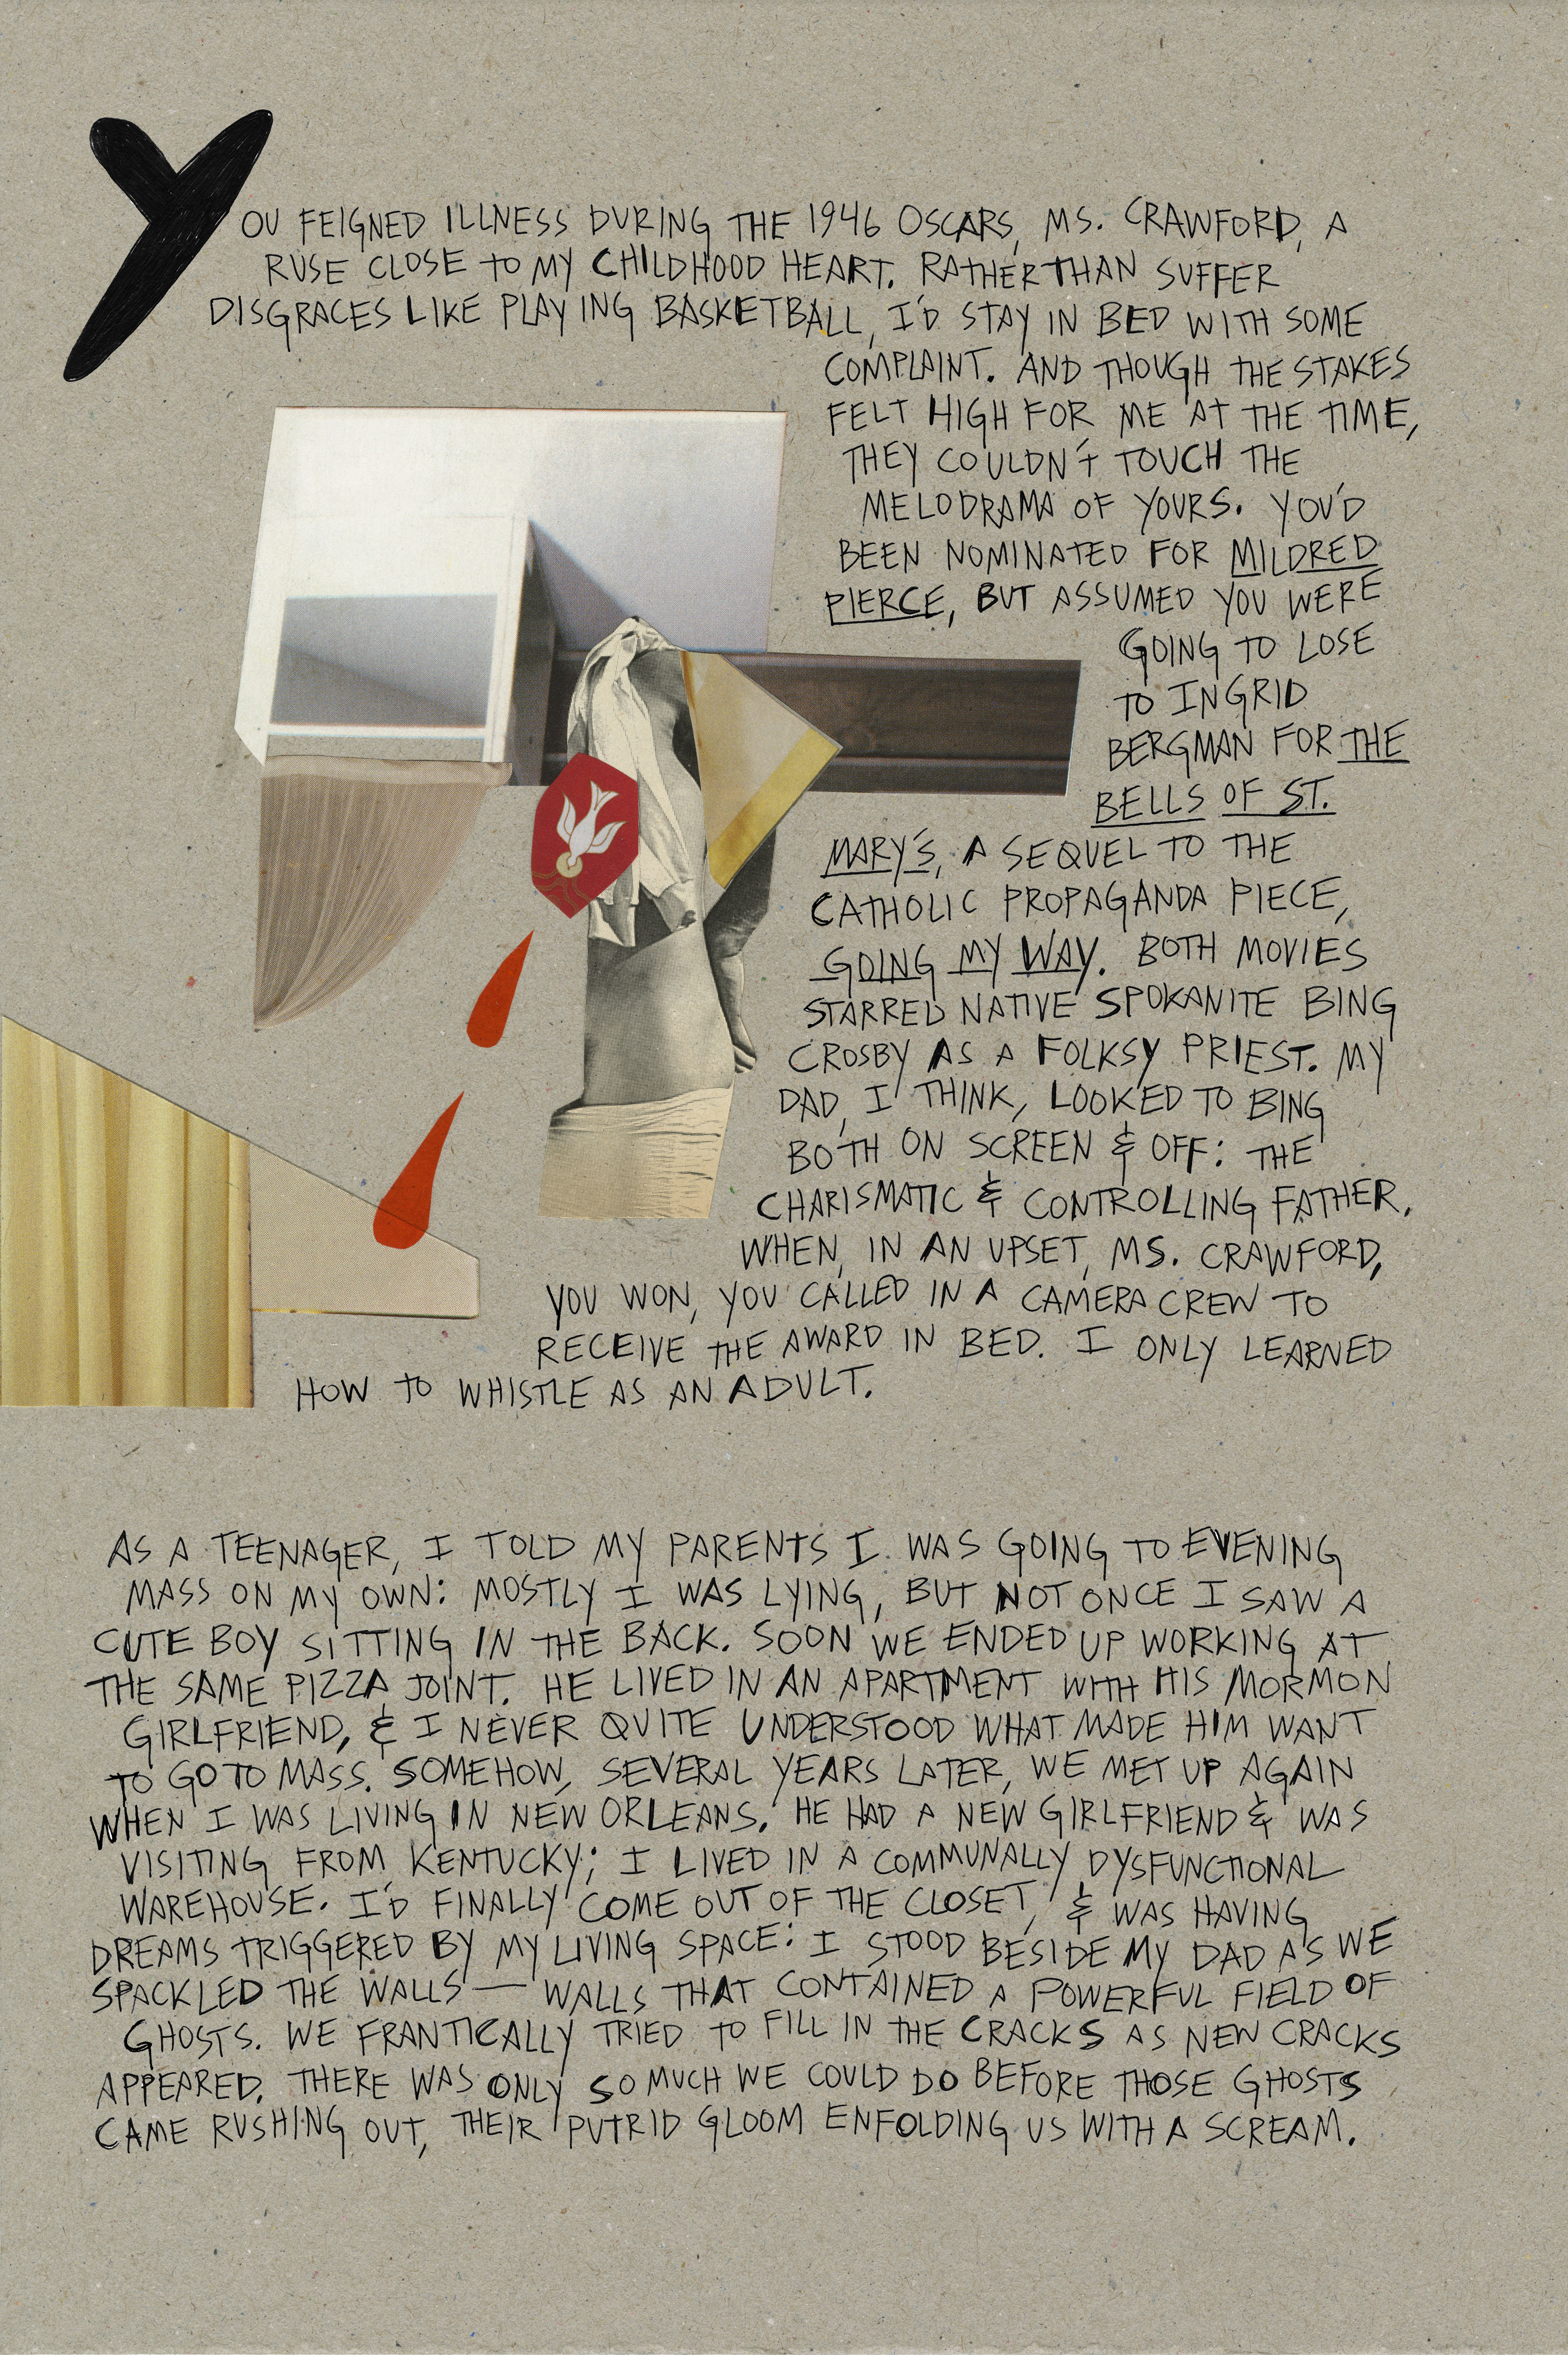 YOU FEIGNED ILLNESS DURING THE 1946 OSCARS, MS. CRAWFORD, A
RUSE CLOSE TO MY CHILDHOOD HEART. RATHER THAN SUFFER
DISGRACES LIKE PLAYING BASKETBALL, I'D STAY IN BED WITH SOME
COMPLAINT. AND THOUGH THE STAKES
FELT HIGH FOR ME AT THE TIME,
THEY COULDN'T TOUCH THE
MELODRAMA OF YOURS. YOU'D
BEEN NOMINATED FOR MILDRED
PIERCE, BUT ASSUMED YOU WERE
GOING TO LOSE
TO INGRID
BERGMAN FOR THE
BELLS OF ST.
MARY'S, A SEQUEL TO THE
CATHOLIC PROPAGANDA PIECE,
GOING MY WAY. BOTH MOVIES
STARRED NATIVE SPOKANITE BING
CROSBY AS A FOLKSY PRIEST. MY
DAD, I THINK, LOOKED TO BING
BOTH ON SCREEN & OFF: THE
CHARISMATIC & CONTROLLING FATHER.
WHEN, IN AN UPSET, MS. CRAWFORD,
YOU WON, YOU CALLED IN A CAMERA CREW TO
RECEIVE THE AWARD IN BED. I ONLY LEARNED
HOW TO WHISTLE AS AN ADULT.
AS A TEENAGER, I TOLD MY PARENTS I WAS GOING TO EVENING
MASS ON MY OWN: MOSTLY I WAS LYING, BUT NOT ONCE I SAW A
CUTE BOY SITTING IN THE BACK. SOON WE ENDED UP WORKING AT
THE SAME PIZZA JOINT. HE LIVED IN AN APARTMENT WITH HIS MORMON
GIRLFRIEND, & I NEVER QUITE UNDERSTOOD WHAT MADE HIM WANT
TO GO TO MASS. SOMEHOW, SEVERAL YEARS LATER, WE MET UP AGAIN
WHEN I WAS LIVING IN NEW ORLEANS. HE HAD A NEW GIRLFRIEND & WAS
VISITING FROM KENTUCKY; I LIVED IN A COMMUNALLY DYSFUNCTIONAL
WAREHOUSE. I'D FINALLY COME OUT OF THE CLOSET, & WAS HAVING
DREAMS TRIGGERED BY MY LIVING SPACE: I STOOD BESIDE MY DAD AS WE
SPACKLED THE WALLS — WALLS THAT CONTAINED A POWERFUL FIELD OF
GHOSTS. WE FRANTICALLY TRIED TO FILL IN THE CRACKS AS NEW CRACKS
APPEARED. THERE WAS ONLY SO MUCH WE COULD DO BEFORE THOSE GHOSTS
CAME RUSHING OUT, THEIR PUTRID GLOOM ENFOLDING US WITH A SCREAM.